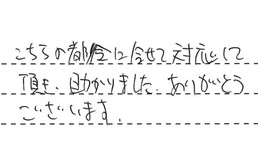 こちらの都合に合せて対応して
頂き、助かりました。ありがとう
ございます。